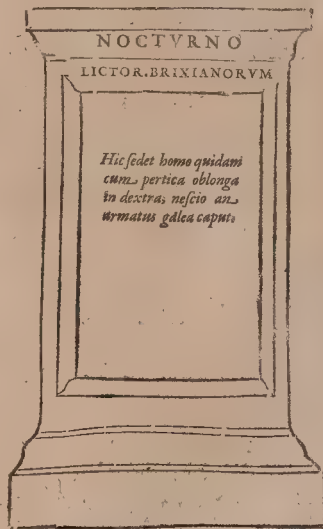 NOCTVRNO
LICTOR.BRIXIANORVM
Hic ſedet homo quidam
cum pertica oblonga
in dextra; neſcio an
armatus galea caput;